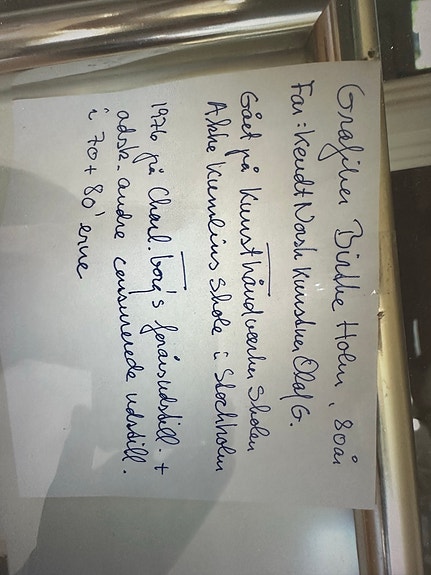 Grafiker Birthe Holm, 80 år
Far: Kendt Norsk Kunstner Olaf G.
Gået på Kunsthåndværker Skolen
Akke Kumlins Skole i Stockholm
1976 på Charl.borg's forårsudstill. +
adsk. andre censurerede udstill.
i 70 + 80'erne